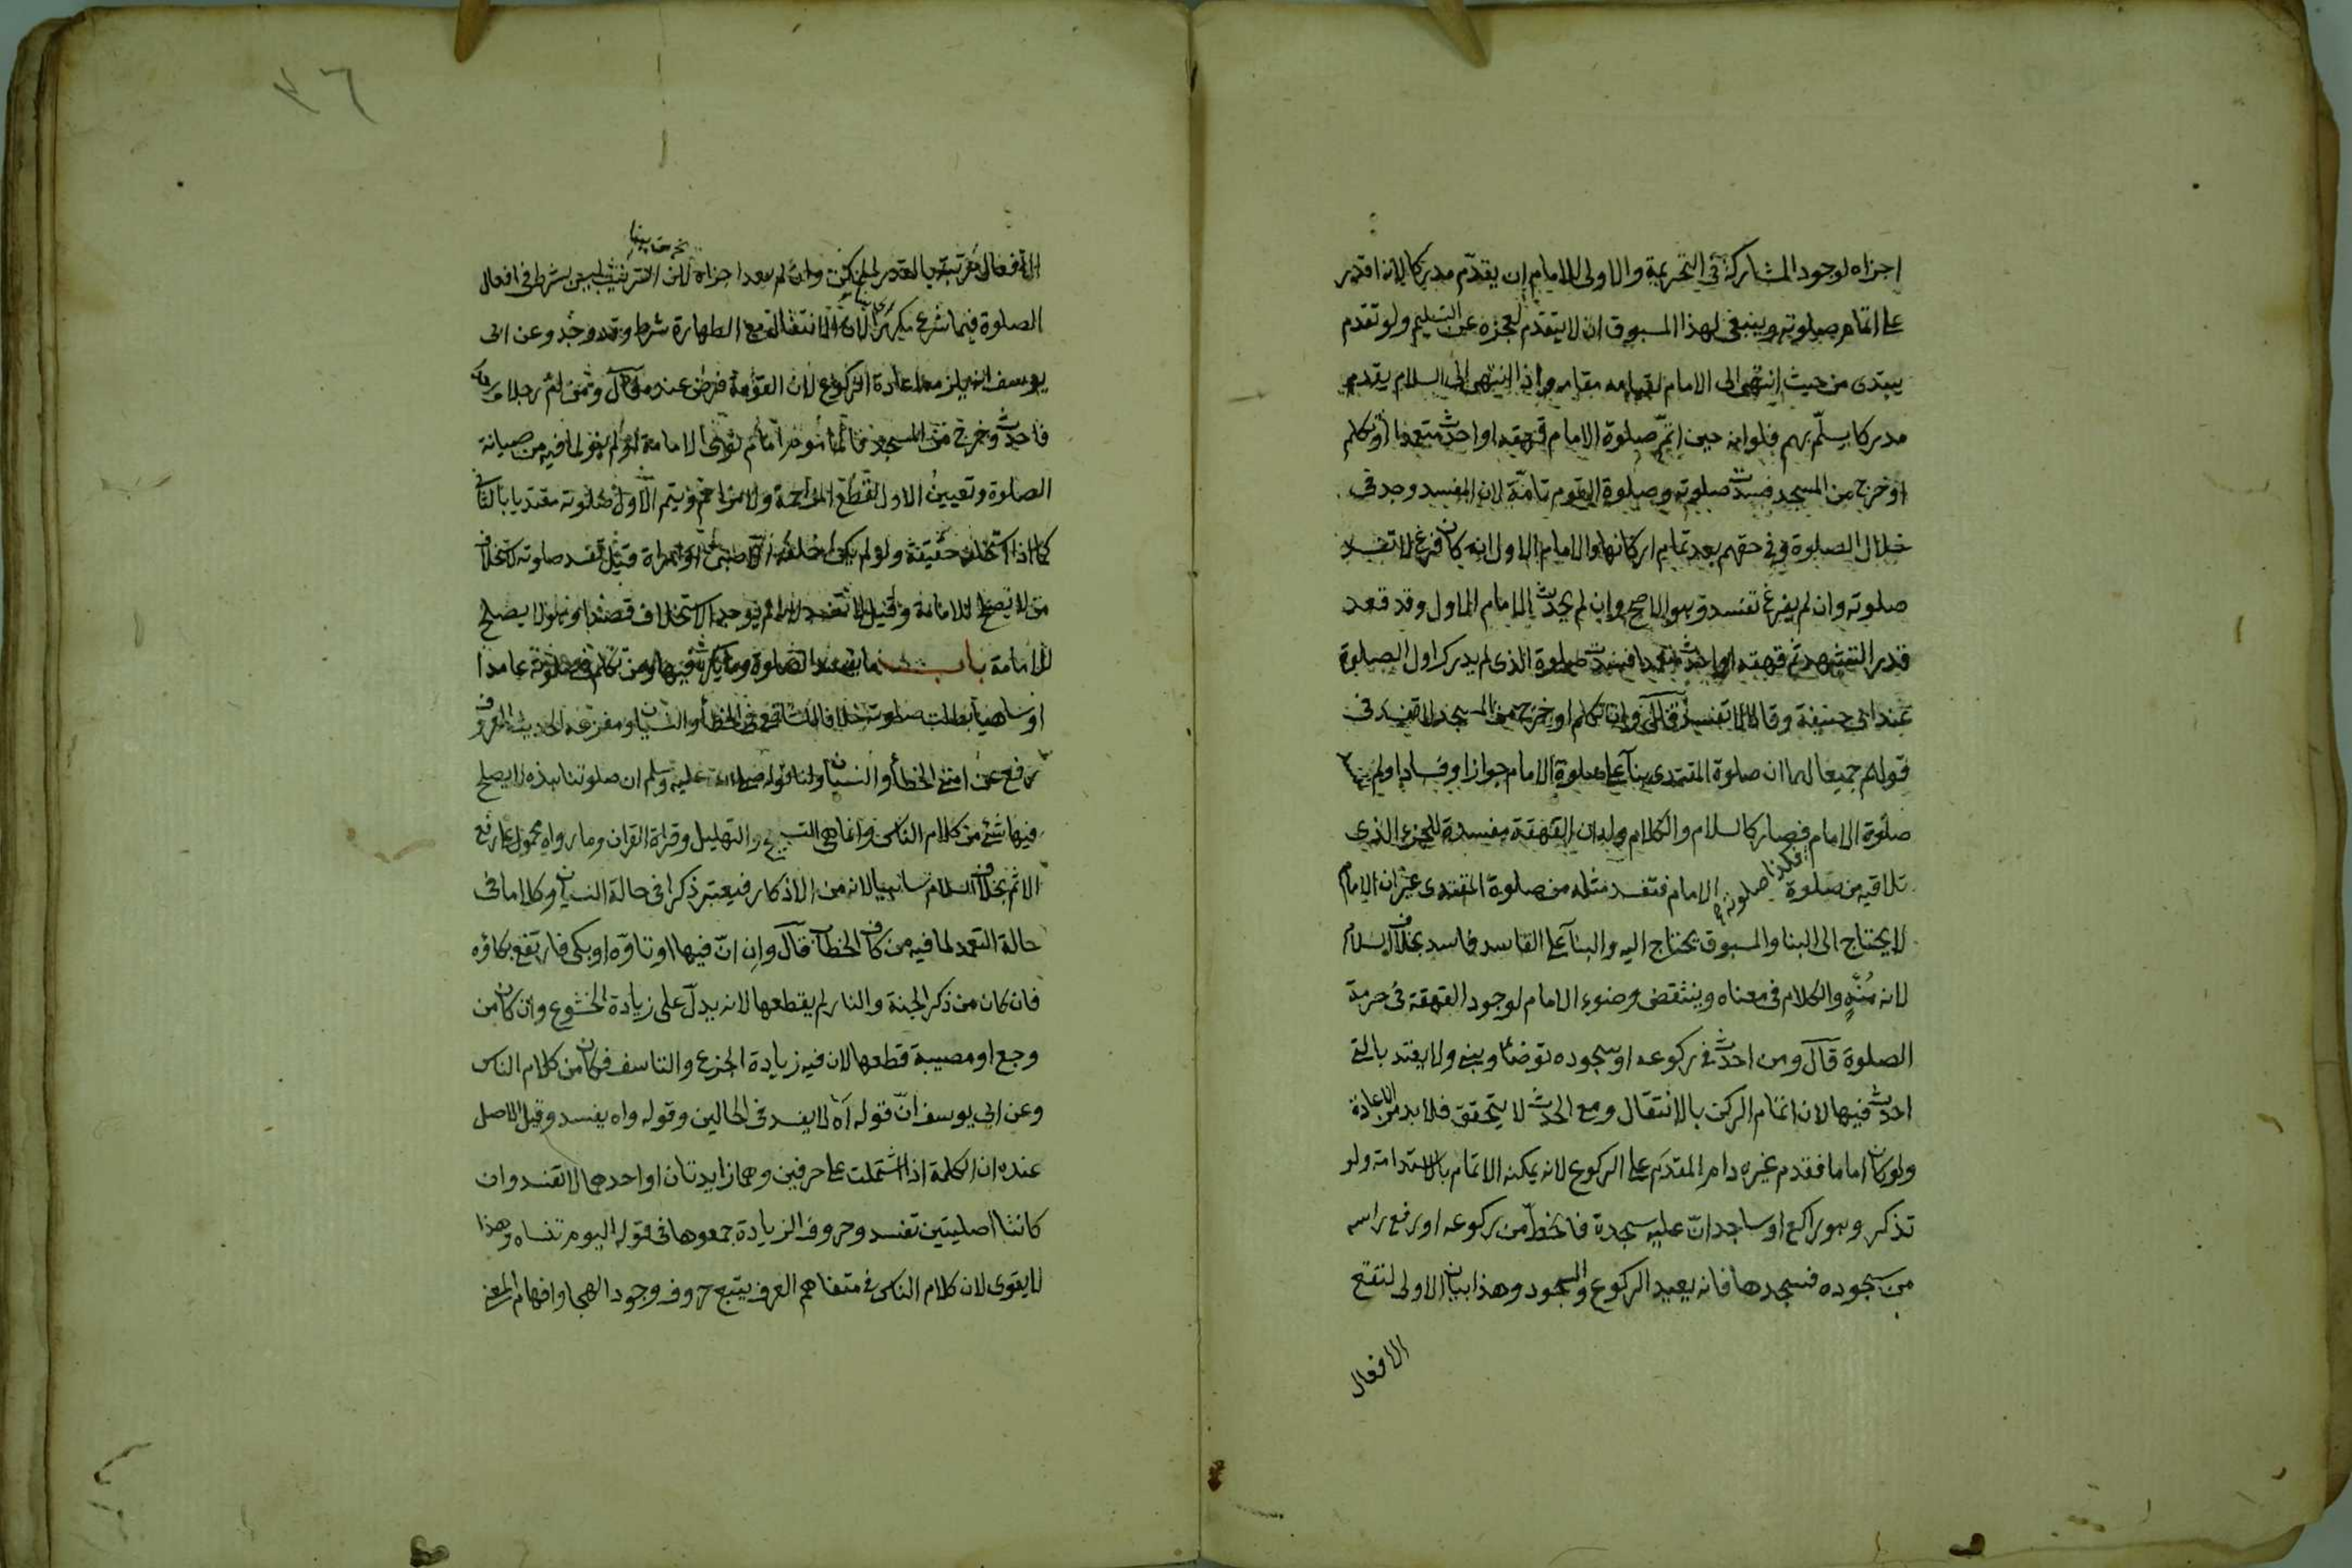 اجزاه لوجود المشاركة في التحريمة والاولى للامام ان يقدم مدركا لانه اقدر
على اتمام صلوته وينبغي لهذا المسبوق ان لا يتقدم لعجزه عن التسليم ولو تقدم
يبتدى من حيث انتهى اليه الامام لقيامه مقامه واذا انتهى الى السلام يقدم
مدركا يسلم بهم فلو انه حين اتم صلوة الامام قهقه او احدث متعمدا او تكلم
او خرج من المسجد فسدت صلوته وصلوة القوم تامة لان المفسد وجد في
خلال الصلوة وفي حقهم بعد تمام اركانها والامام الاول ان كان فرغ لا تفسد
صلوته وان لم يفرغ تفسد وهو الاصح وان لم يحدث الامام الاول وقد قعد
قدر التشهد ثم قهقه او احدث متعمدا فسدت صلوة الذى لم يدرك اول الصلوة
عند ابى حنيفة وقالا لا تفسد قال وان تكلم او خرج من المسجد لا تفسد في
قولهم جميعا لهما ان صلوة المقتدى بنآ على صلوة الامام جوازا وفسادا ولم
صلوة الامام فكذا صلوته فصار كالسلام والكلام وله ان القهقهة مفسدة للجزء الذى
تلاقيه من صلوة الامام فتفسد مثله من صلوة المقتدى غير ان الامام
لا يحتاج الى البنا والمسبوق يحتاج اليه والبنآ على الفاسد فاسد بخلاف السلام
لانه مُنهٍ والكلام في معناه وينتقض وضوء الامام لوجود القهقهة في حرمة
الصلوة قال ومن احدث في ركوعه او سجوده توضأ وبنى ولا يعتد بالتى
احدث فيها لان اتمام الركن بالانتقال ومع الحدث لا يتحقق فلا بد من الاعادة
ولو كان اماما فقدم غيره دام المقدم على الركوع لانه يمكنه الاتمام بالاستدامة ولو
تذكر وهو راكع او ساجد ان عليه سجدة فانحط من ركوعه او رفع راسه
من سجوده فسجدها فانه يعيد الركوع والسجود وهذا بيان الاولى لتقع
الافعال
٤٦
الافعال مرتبة بالقدر الممكن وان لم يعد اجزاه لان الترتيب ليس بشرط في افعال
الصلوة فيما شرع مكررا لان الانتقال مع الطهارة شرط وقد وجد وعن ابى
يوسف انه يلزمه اعادة الركوع لان القومة فرض عنده قال ومن ام رجلا
فاحدث وخرج من المسجد فالمأموم امام نوى الامامة او لم ينو لما فيه من صيانة
الصلوة وتعيين الاول لقطع المزاحمة ولا مزاحم ويتم الاول صلوته مقتديا بالثانى
كما اذا استخلفه حقيقة ولو لم يكن خلفه الا صبى او امراة قيل تفسد صلوته لاستخلاف
من لا يصلح للامامة وقيل لا تفسد لانه لم يوجد الاستخلاف قصدا وهو لا يصلح
للامامة باب ما يفسد الصلوة وما يكره فيها ومن تكلم في صلوته عامدا
او ساهيا بطلت صلوته خلافا للشافعى في الخطأ والنسيان ومفزعه الحديث المعروف
رفع عن امتى الخطأ والنسيان ولنا قوله صلى الله عليه وسلم ان صلوتنا هذه لا يصلح
فيها شئ من كلام الناس وانما هى التسبيح والتهليل وقراة القران وما رواه محمول على رفع
الاثم بخلاف السلام ساهيا لانه من الاذكار فيعتبر ذكرا في حالة النسيان وكلاما في
حالة التعمد لما فيه من كاف الخطاب قال وان انّ فيها او تاوّه او بكى فارتفع بكاؤه
فان كان من ذكر الجنة والنار لم يقطعها لانه يدل على زيادة الخشوع وان كان من
وجع او مصيبة قطعها لان فيه زيادة الجزع والتاسف فكان من كلام الناس
وعن ابى يوسف انّ قوله آه لا يفسد في الحالين وقوله واه يفسد وقيل الاصل
عنده ان الكلمة اذا اشتملت على حرفين وهما زايدتان او احدهما لا تفسد وان
كانتا اصليتين تفسد وحروف الزيادة جمعوها في قوله اليوم تنساه وهذا
لا يقوى لان كلام الناس في متفاهم العرف يتبع حروف وجود الهجا وافهام المعنى